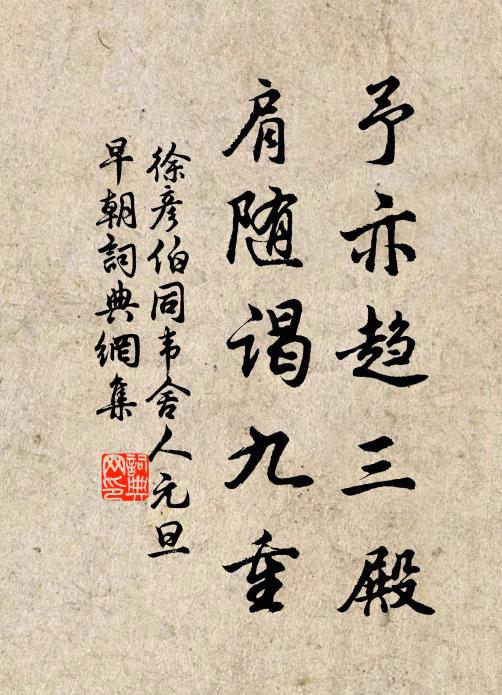 予亦趋三殿
肩随谒九重
徐彦伯同韦舍人元旦
早朝詞典網集
詞典
网印